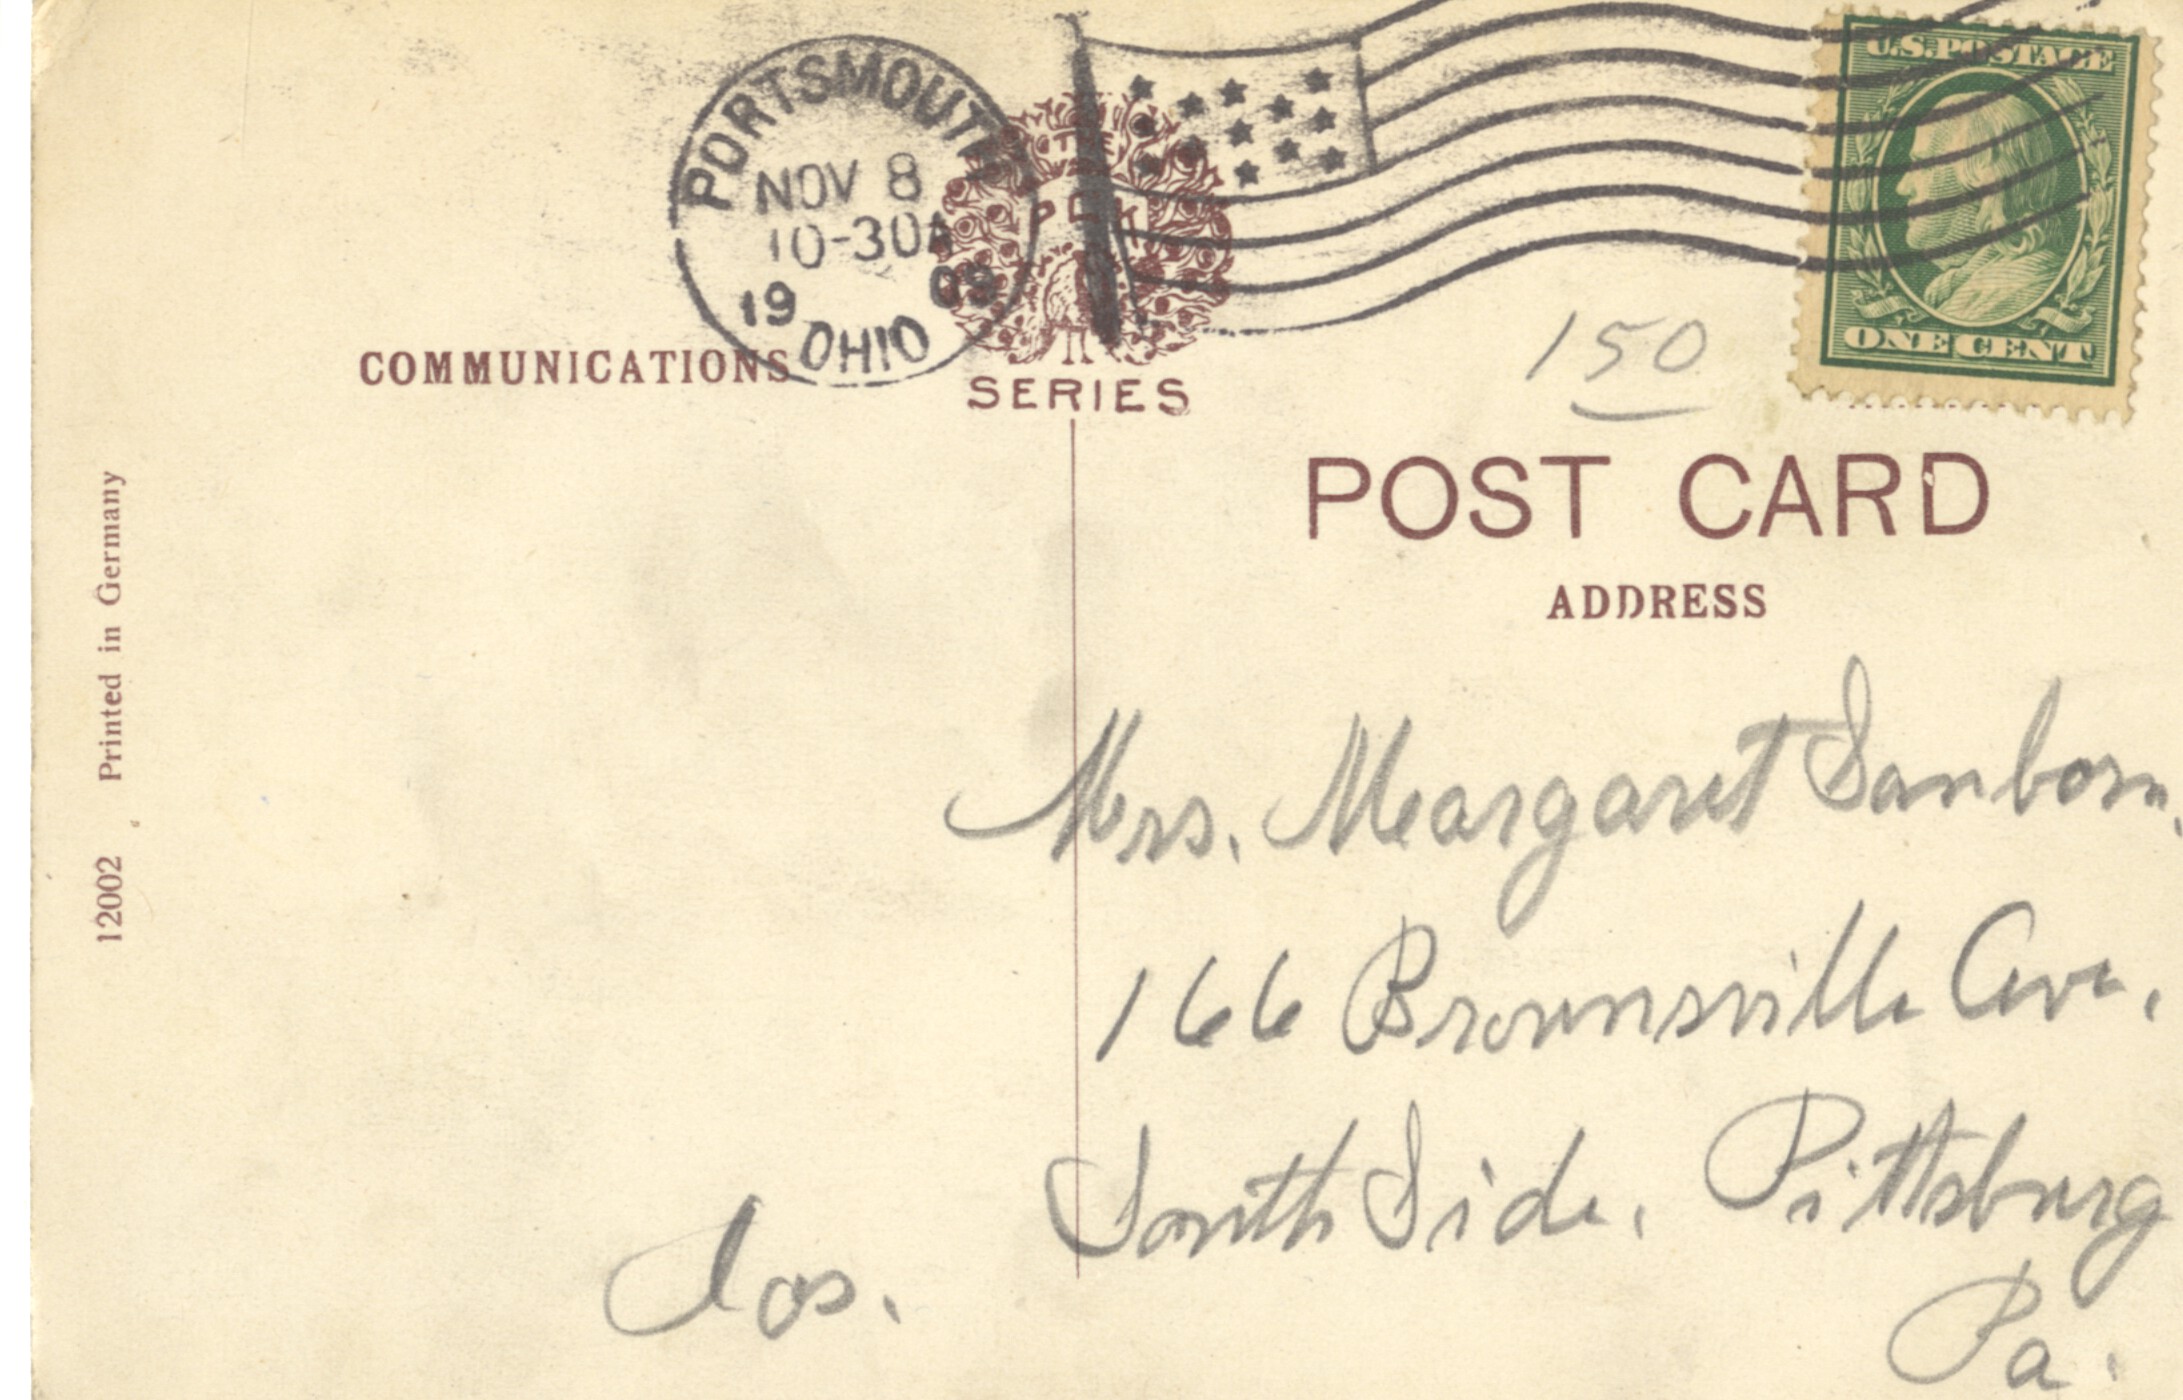 PORTSMOUTH
NOV 8
10-30A
19 09
OHIO
U.S. POSTAGE
ONE CENT
THE
P C K
SERIES
COMMUNICATIONS
150
POST CARD
ADDRESS
12002 Printed in Germany
Mrs. Meargaret Sanborn,
166 Brownsville Ave.
South Side, Pittsburg
Pa.
Jos.